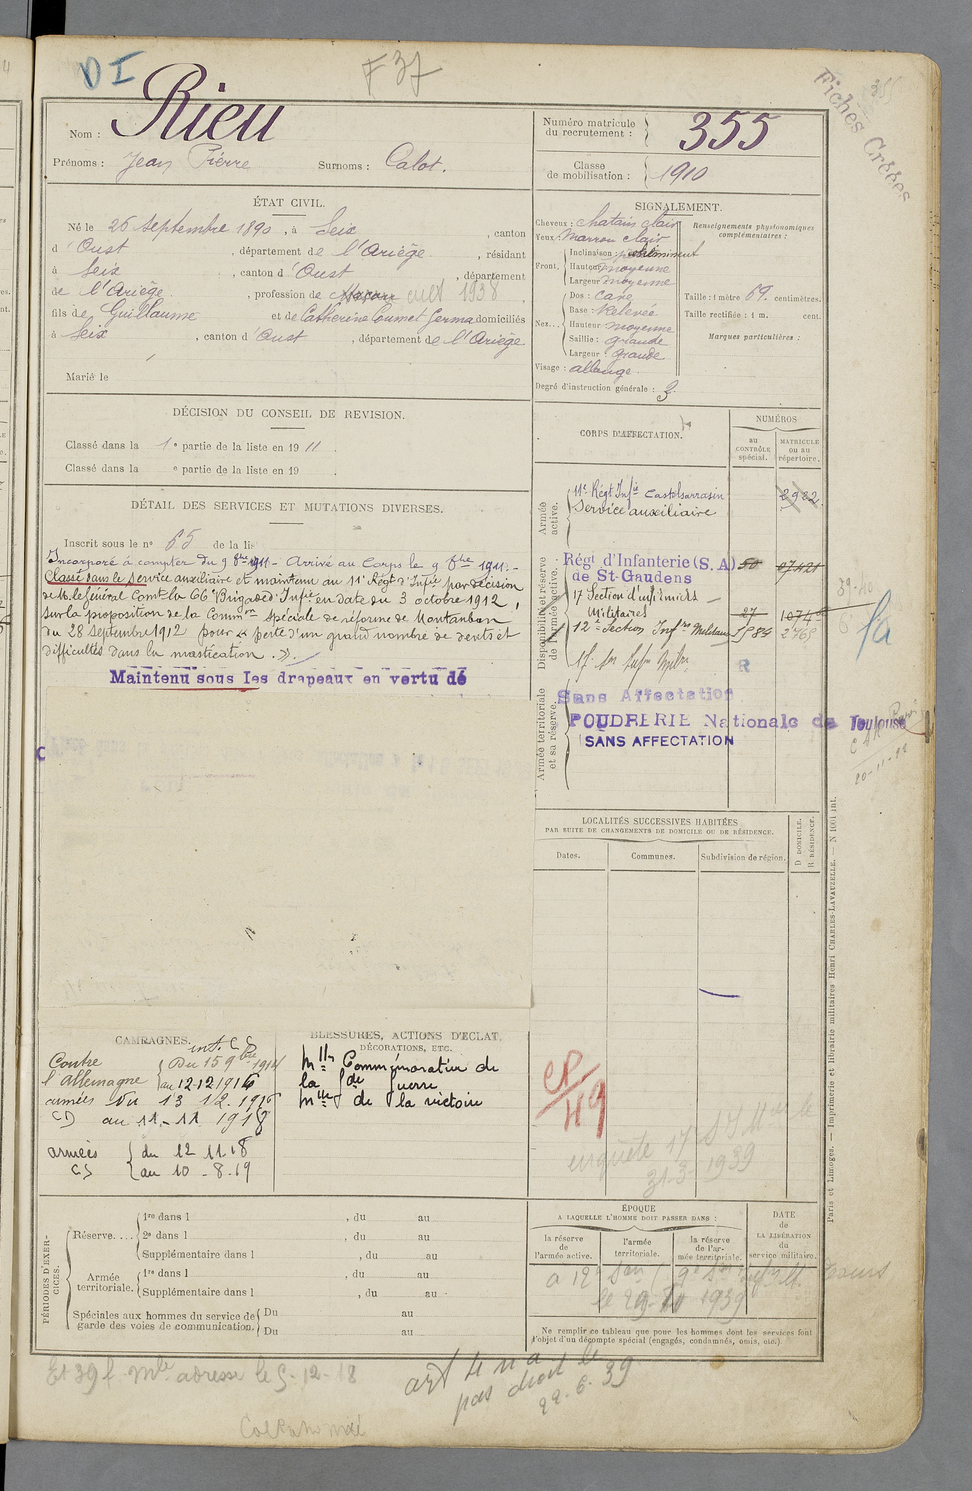 DI
F 37
Fiches Créées
355
Nom : Rieu
Prénoms : Jean Pierre Surnoms : Calot.
Numéro matricule du recrutement : 355
Classe de mobilisation : 1910
ÉTAT CIVIL.
Né le 26 Septembre 1890, à Seix, canton
d'Oust, département de l'Ariège, résidant
à Seix, canton d'Oust, département
de l'Ariège, profession de cult 1938
fils de Guillaume et de Catherine Coumet Germa domiciliés
à Seix, canton d'Oust, département de l'Ariège
Marié le
SIGNALEMENT.
Cheveux : chatain clair
Yeux : Marron clair
Front. Inclinaison :
Hauteur moyenne
Largeur moyenne
Nez... Dos : cave
Base : Relevée
Hauteur moyenne
Saillie : grande
Largeur : grande
Visage : allongé
Renseignements physionomiques complémentaires :
Taille : 1 mètre 69. centimètres.
Taille rectifiée : 1 m. cent.
Marques particulières :
Degré d'instruction générale : 3
DÉCISION DU CONSEIL DE REVISION.
Classé dans la 1e partie de la liste en 1911.
Classé dans la e partie de la liste en 19
DÉTAIL DES SERVICES ET MUTATIONS DIVERSES.
Inscrit sous le n° 65 de la li
Incorporé à compter du 9 8bre 1911 - Arrivé au Corps le 9 8bre 1911. -
Classé dans le service auxiliaire et maintenu au 11e Régt d'Infie par décision
de M. le Général Comt la 66e Brigade d'Infie en date du 3 octobre 1912,
sur la proposition de la Common Spéciale de réforme de Montauban
du 28 Septembre 1912 pour « perte d'un grand nombre de dents et
difficultés dans la mastication. ».
Maintenu sous les drapeaux en vertu dé
CORPS D'AFFECTATION.
NUMÉROS
au CONTRÔLE spécial.
MATRICULE ou au répertoire.
Armée active.
11e Régt Infie Castelsarrasin 2982
Service auxiliaire
Disponibilité et réserve de l'armée active.
Régt d'Infanterie (S. A) 50 07421
de St-Gaudens
17 Section d'infirmiers
Militaires 27 1074
12e Section Infres Militaires
39-40
fa
R
Armée territoriale et sa réserve.
Sans Affectation
POUDRERIE Nationale de Toulouse
SANS AFFECTATION
20-11-28
LOCALITÉS SUCCESSIVES HABITÉES
PAR SUITE DE CHANGEMENTS DE DOMICILE OU DE RÉSIDENCE.
Dates. Communes. Subdivision de région. D. DOMICILE. R. RÉSIDENCE.
CAMPAGNES.
int. CS
Contre l'Allemagne Du 15 9bre 1914
au 12.12.1916
armées du 13 12.1916
CD au 11-11 1918
armées du 12 11 18
CS au 10-8-19
BLESSURES, ACTIONS D'ÉCLAT, DÉCORATIONS, ETC.
Mlle Commémorative de
la Gde guerre
Mlle de la victoire
CP/49
enquête 17
31-3-1939
PÉRIODES D'EXERCICES.
Réserve.... 1re dans l , du au
2e dans l , du au
Supplémentaire dans l , du au
Armée territoriale. 1re dans l , du au
Supplémentaire dans l , du au
Spéciales aux hommes du service de garde des voies de communication. Du au
Du au
ÉPOQUE
A LAQUELLE L'HOMME DOIT PASSER DANS :
la réserve de l'armée active.
l'armée territoriale.
la réserve de l'armée territoriale.
DATE de LA LIBÉRATION du service militaire.
1939
Ne remplir ce tableau que pour les hommes dont les services font
l'objet d'un décompte spécial (engagés, condamnés, omis, etc.)
Paris et Limoges. — Imprimerie et librairie militaires Henri CHARLES-LAVAUZELLE. — N 1001 int.
adresse le 5-12-18
art 4 n'a
pas droit le
22.6.39